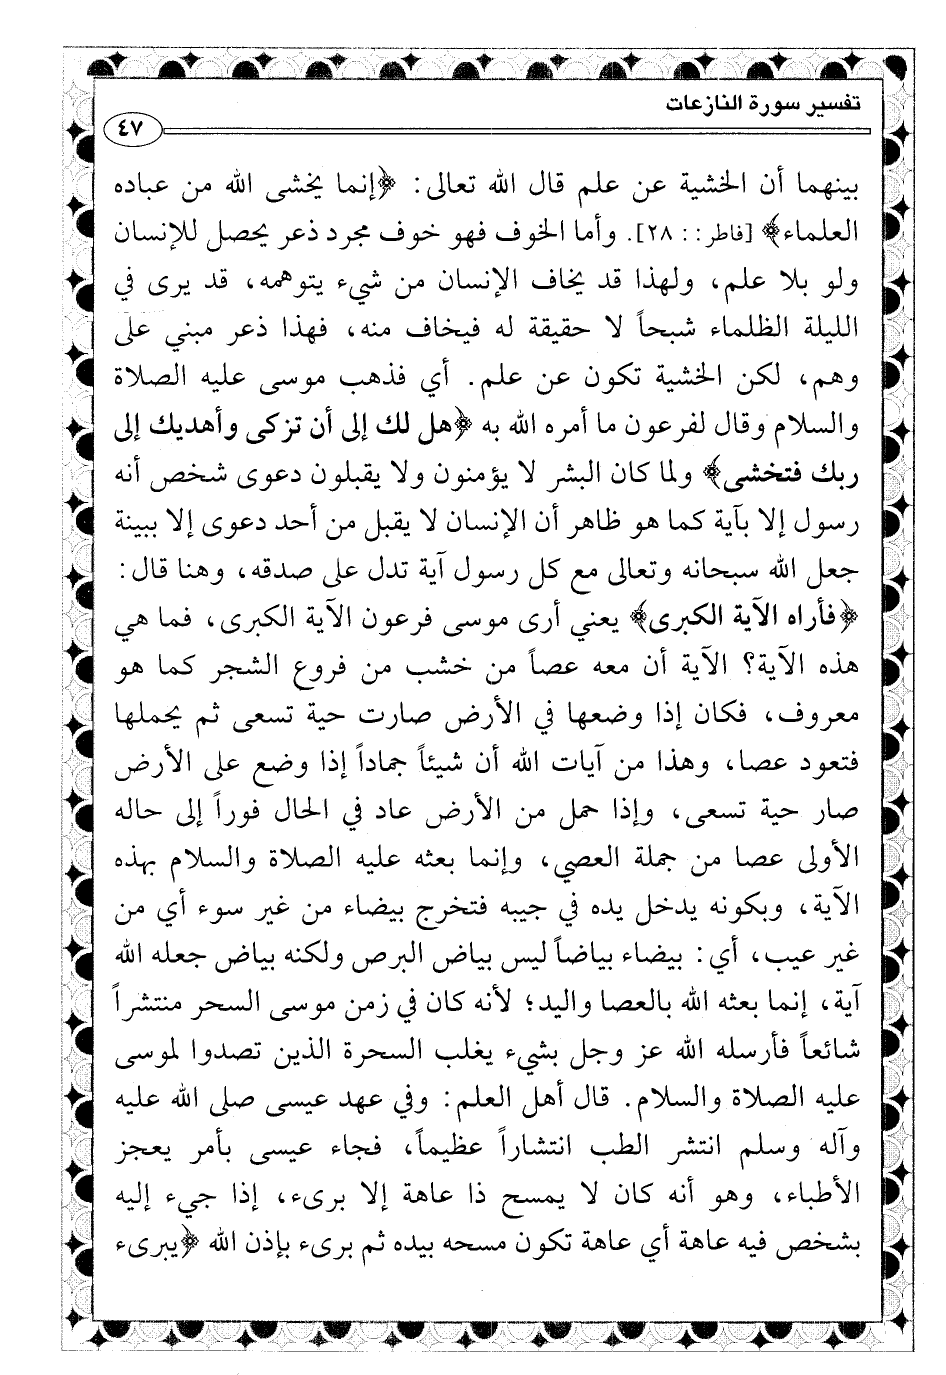 تفسير سورة النازعات
٤٧
بينهما أن الخشية عن علم قال الله تعالى: ﴿إنما يخشى الله من عباده
العلماء﴾ [فاطر:: ٢٨]. وأما الخوف فهو خوف مجرد ذعر يحصل للإنسان
ولو بلا علم، ولهذا قد يخاف الإنسان من شيء يتوهمه، قد يرى في
الليلة الظلماء شبحاً لا حقيقة له فيخاف منه، فهذا ذعر مبني على
وهم، لكن الخشية تكون عن علم. أي فذهب موسى عليه الصلاة
والسلام وقال لفرعون ما أمره الله به ﴿هل لك إلى أن تزكى وأهديك إلى
ربك فتخشى﴾ ولما كان البشر لا يؤمنون ولا يقبلون دعوى شخص أنه
رسول إلا بآية كما هو ظاهر أن الإنسان لا يقبل من أحد دعوى إلا ببينة
جعل الله سبحانه وتعالى مع كل رسول آية تدل على صدقه، وهنا قال:
﴿فأراه الآية الكبرى﴾ يعني أرى موسى فرعون الآية الكبرى، فما هي
هذه الآية؟ الآية أن معه عصاً من خشب من فروع الشجر كما هو
معروف، فكان إذا وضعها في الأرض صارت حية تسعى ثم يحملها
فتعود عصا، وهذا من آيات الله أن شيئاً جماداً إذا وضع على الأرض
صار حية تسعى، وإذا حمل من الأرض عاد في الحال فوراً إلى حاله
الأولى عصا من جملة العصي، وإنما بعثه عليه الصلاة والسلام بهذه
الآية، وبكونه يدخل يده في جيبه فتخرج بيضاء من غير سوء أي من
غير عيب، أي: بيضاء بياضاً ليس بياض البرص ولكنه بياض جعله الله
آية، إنما بعثه الله بالعصا واليد؛ لأنه كان في زمن موسى السحر منتشراً
شائعاً فأرسله الله عز وجل بشيء يغلب السحرة الذين تصدوا لموسى
عليه الصلاة والسلام. قال أهل العلم: وفي عهد عيسى صلى الله عليه
وآله وسلم انتشر الطب انتشاراً عظيماً، فجاء عيسى بأمر يعجز
الأطباء، وهو أنه كان لا يمسح ذا عاهة إلا برىء، إذا جيء إليه
بشخص فيه عاهة أي عاهة تكون مسحه بيده ثم برىء بإذن الله ﴿يبرىء